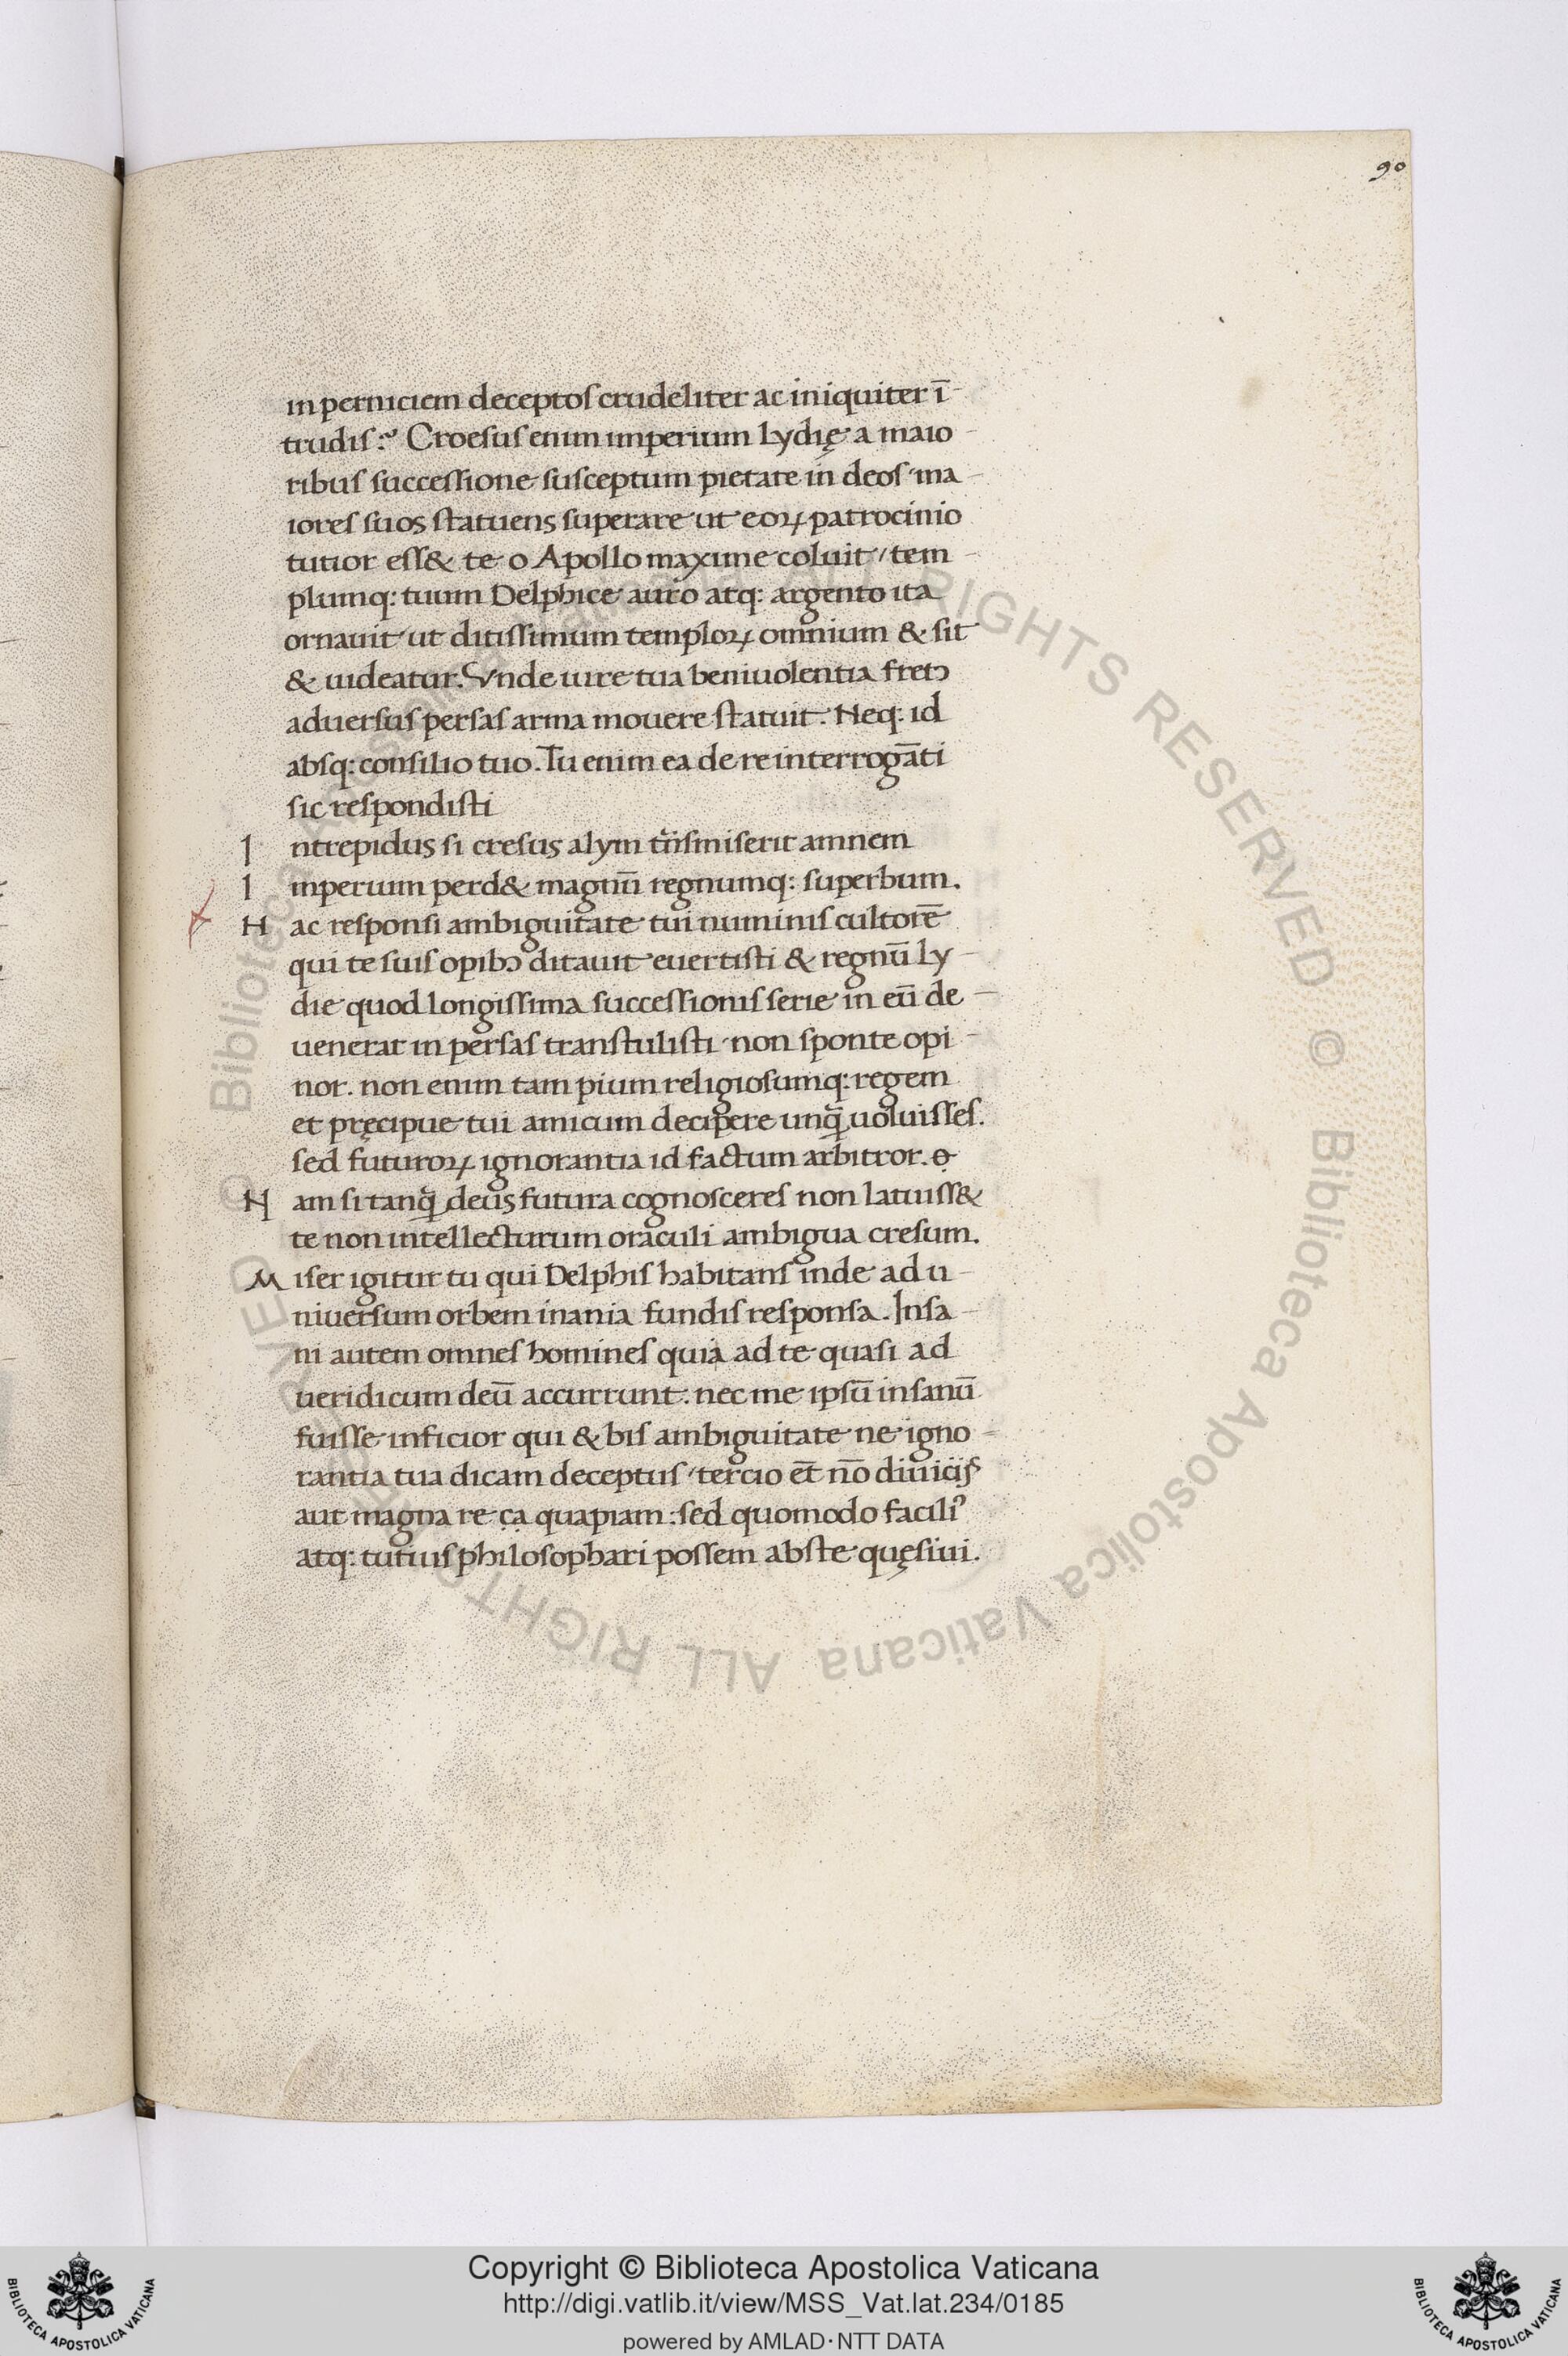 90
in perniciem deceptos crudeliter ac iniquiter ī
trudis? Croesus enim imperium Lydię a maio
ribus successione susceptum pietate in deos ma
iores suos statuens superare ut eoꝝ patrocinio
tutior ess& te o Apollo maxime coluit / tem
plumq: tuum Delphice auro atq: argento ita
ornauit ut ditissimum temploꝝ omnium & sit
& uideatur. Vnde iure tua beniuolentia fretꝰ
aduersus persas arma mouere statuit. Neq: id
absq: consilio tuo. Tu enim ea de re interrogāti
sic respondisti
Intrepidus si cresus alym tr̄ismiserit amnem
Imperium perd& magnū regnumq: superbum.
Hac responsi ambiguitate tui numinis cultorē
qui te suis opibꝰ ditauit euertisti & regnū Ly
die quod longissima successionis serie in eū de
uenerat in persas transtulisti non sponte opi
nor. non enim tam pium religiosumq: regem
et pręcipue tui amicum decipere unq̄ uoluisses.
sed futuroꝝ ignorantia id factum arbitror.
Nam si tanq̄ deus futura cognosceres non latuiss&
te non intellecturum oraculi ambigua cresum.
Miser igitur tu qui Delphis habitans inde ad u
niuersum orbem inania fundis responsa. Insa
ni autem omnes homines quia ad te quasi ad
ueridicum deū accurrunt. nec me ipsū insanū
fuisse inficior qui & bis ambiguitate ne igno
rantia tua dicam deceptus / tercio et̄ nō diuicijs
aut magna re ca quapiam: sed quomodo faciliꝰ
atq: tutius philosophari possem abs te quęsiui.
© Biblioteca Apostolica Vaticana ALL RIGHTS RESERVED © Biblioteca Apostolica Vaticana ALL RIGHTS RESERVED
Copyright © Biblioteca Apostolica Vaticana
http://digi.vatlib.it/view/MSS_Vat.lat.234/0185
powered by AMLAD·NTT DATA
BIBLIOTECA APOSTOLICA VATICANA
BIBLIOTECA APOSTOLICA VATICANA